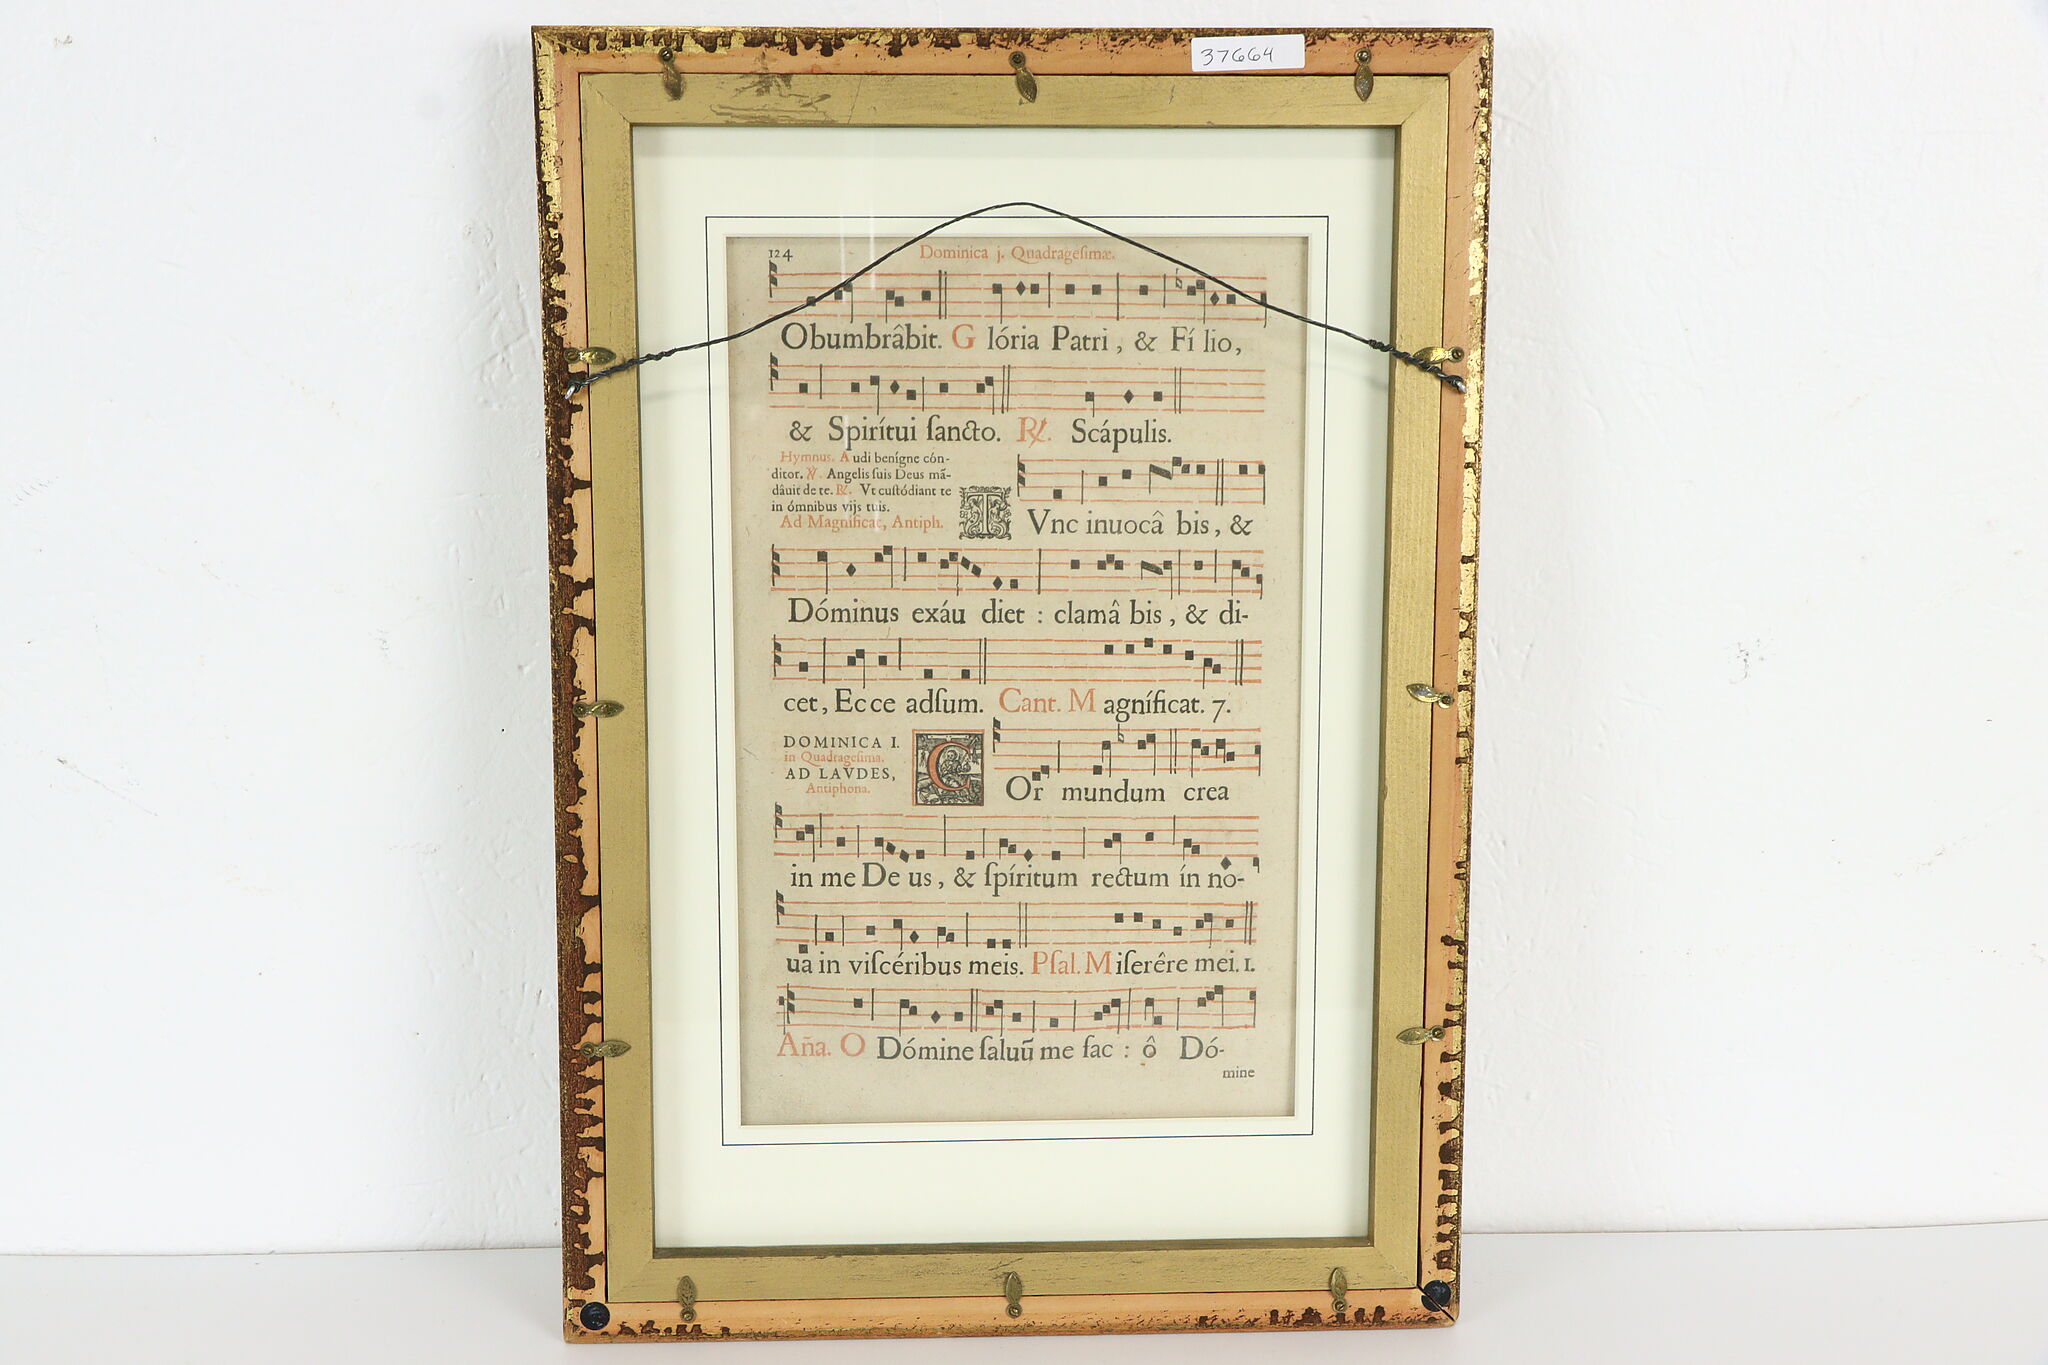 37664
124 Dominica j. Quadragesimæ.
Obumbrâbit. G lória Patri , & Fí lio,
& Spirítui ſancto. ℟. Scápulis.
Hymnus. A udi benígne cón-
ditor. ℣. Angelis ſuis Deus mã-
dâuit de te. ℟. Vt cuſtódiant te
in ómnibus vijs tuis.
Ad Magnificat, Antiph.
T Vnc inuocâ bis, &
Dóminus exáu diet : clamâ bis , & di-
cet, Ec ce adſum. Cant. M agníficat. 7.
DOMINICA I.
in Quadrageſima.
AD LAVDES,
Antiphona.
C Or mundum crea
in me De us, & ſpíritum rectum ín no-
ua in viſcéribus meis. Pſal. M iſerêre mei. 1.
Aña. O Dómine ſaluũ me fac : ô Dó-
mine